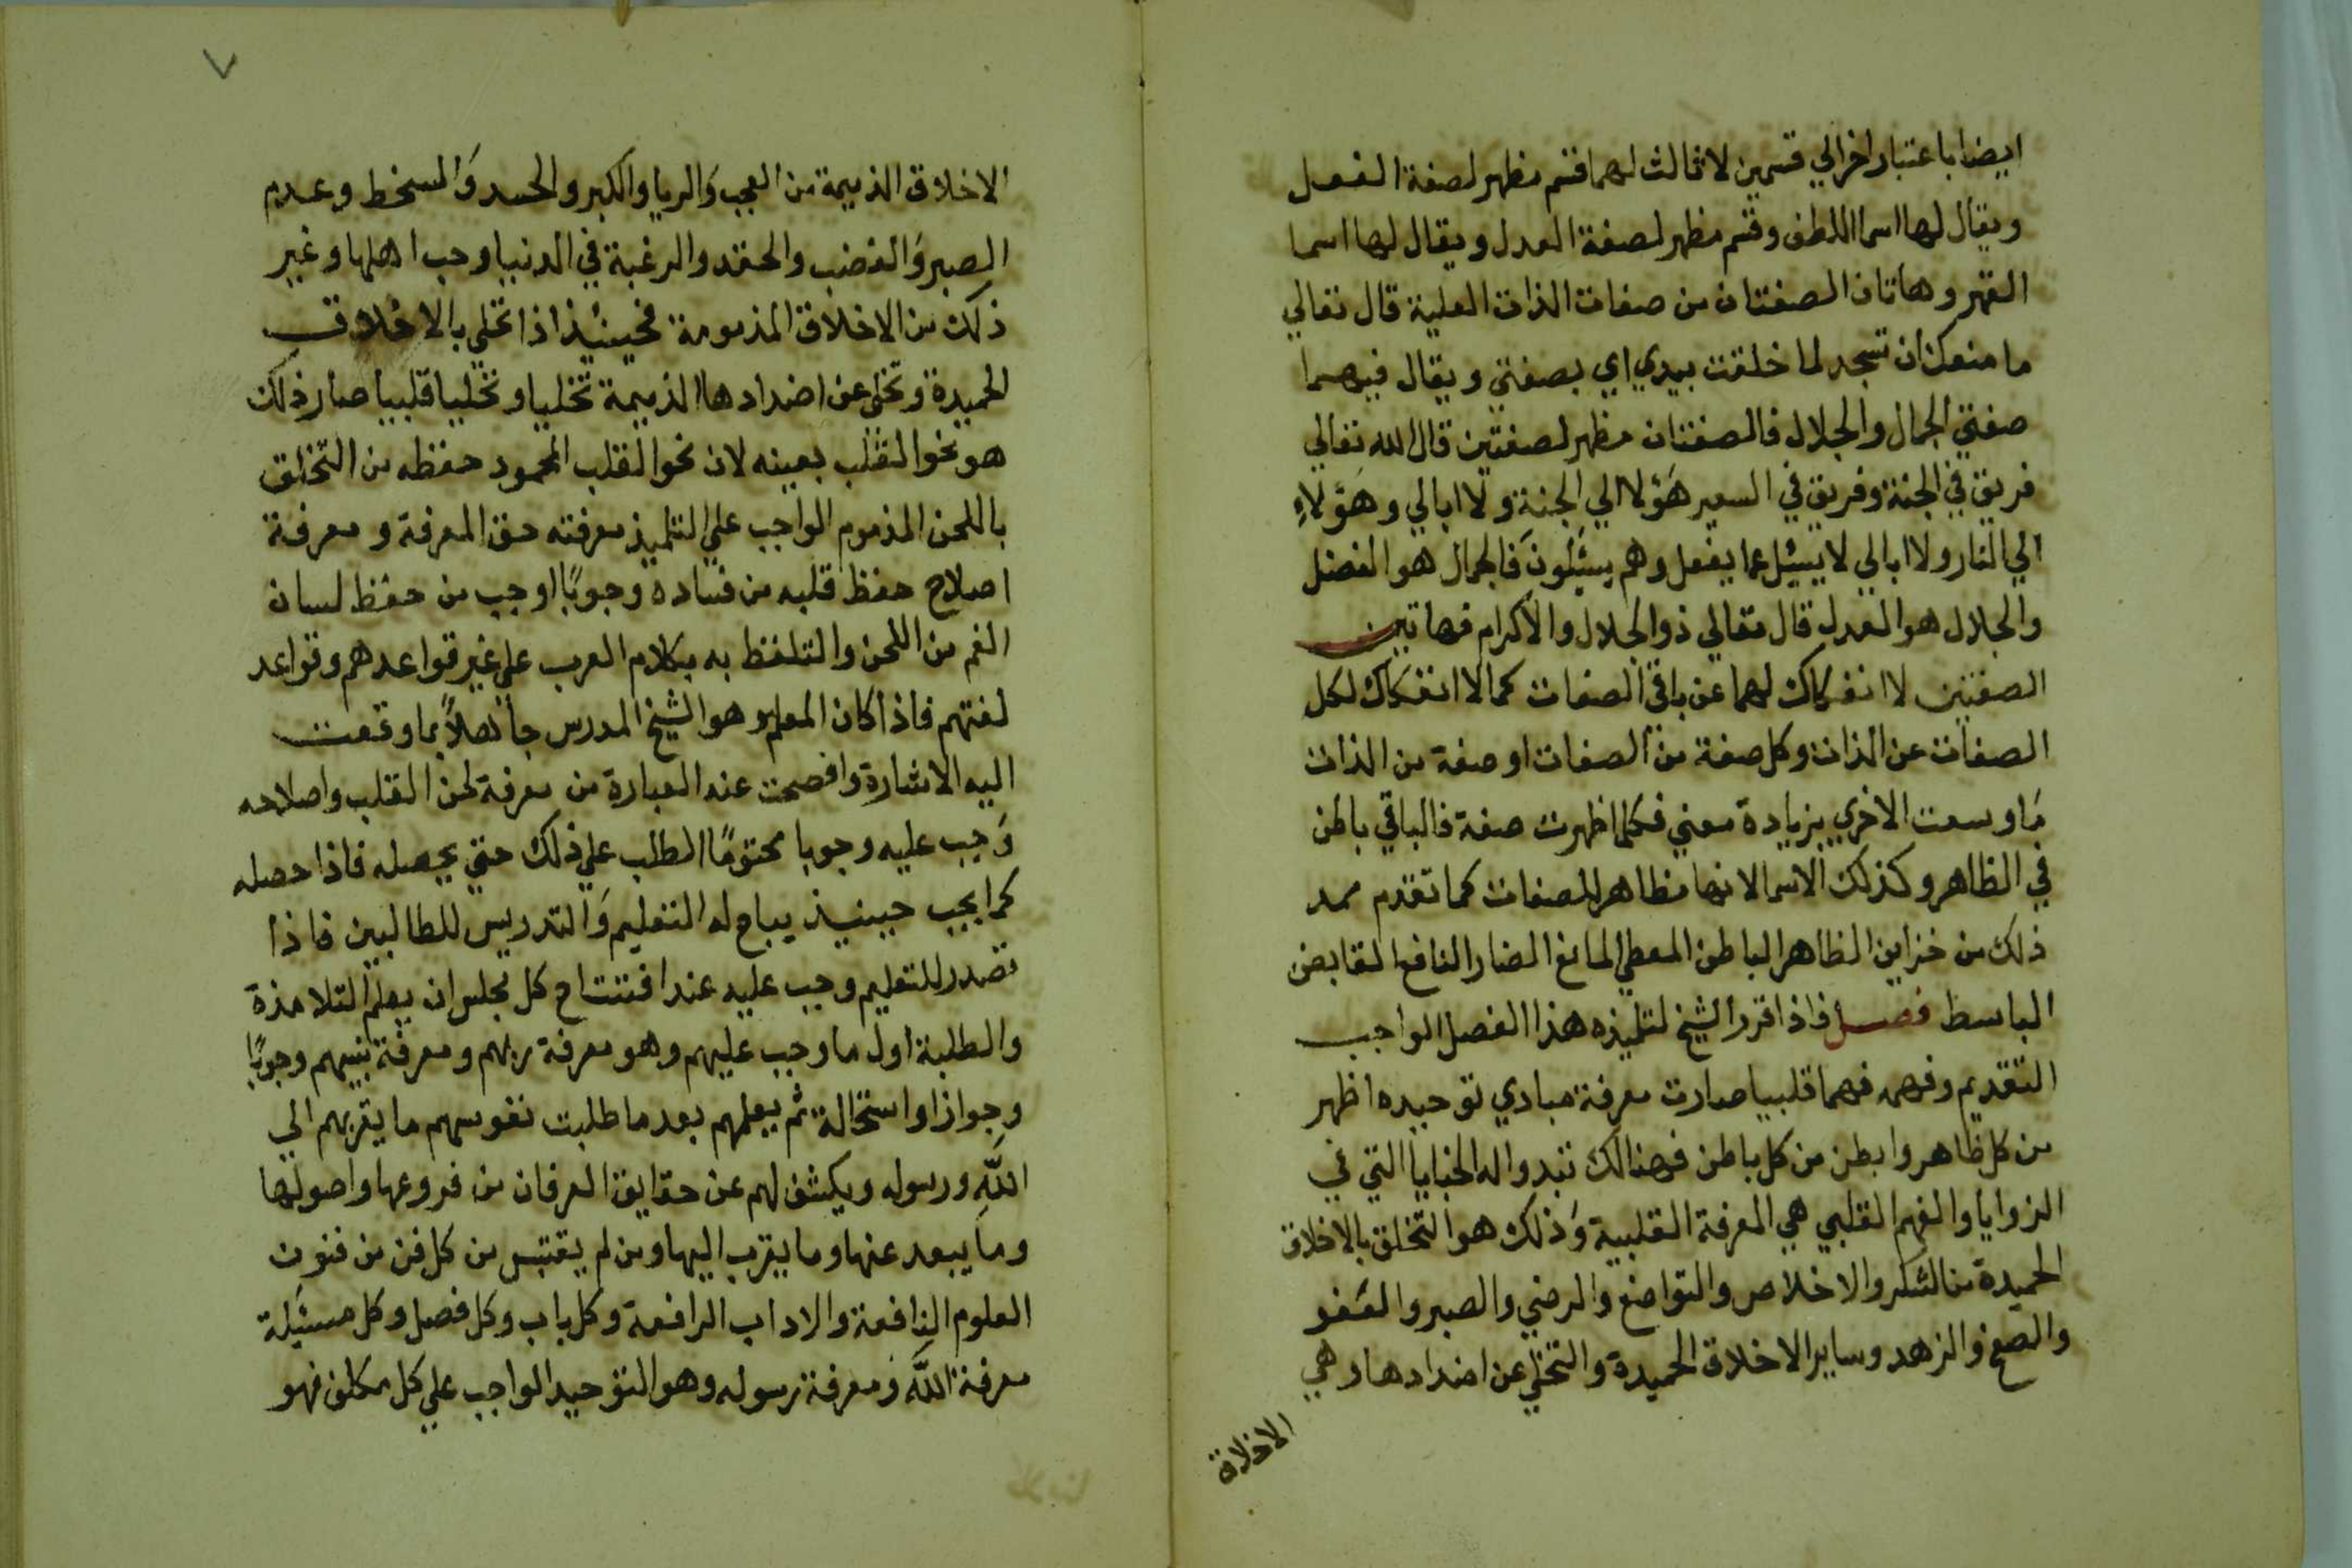 ايضا باعتبار اخر الي قسمين لا ثالث لهما قسم مظهر لصفة الفضل
ويقال لها اسما اللطف وقسم مظهر لصفة العدل ويقال لها اسما
القهر وهاتان الصفتان من صفات الذات العلية قال تعالي
ما منعك ان تسجد لما خلقت بيدي اي بصفتي ويقال فيهما
صفتي الجمال والجلال فالصفتان مظهر لصفتين قال الله تعالي
فريق في الجنة وفريق في السعير هَؤلا الي الجنة ولا ابالي وهَؤلاءِ
الي النار ولا ابالي لا يسئل عما يفعل وهم يسئلونَ فالجمال هو الفضل
والجلال هو العدل قال تعالي ذو الجلال والاكرام فهاتين
الصفتين لا انفكاك لهما عن باقي الصفات كما لا انفكاك لكل
الصفات عن الذات وكل صفة من الصفات او صفة من الذات
مَا وسعت الاخري بزيادة معني فكلما ظهرت صفة فالباقي باطن
في الظاهر وكذلك الاسما لانها مظاهر للصفات كما تقدم ممد
ذلك من خزاين الظاهر الباطن المعطي المانع الضار النافع القابض
الباسط فصل فاذا قرر الشيخ لتلميذه هذا الفصل الواجب
التقديم وفهمه فهما قلبيا صارت معرفة مبادي توحيده اظهر
من كل ظاهر وابطن من كل باطن فهنالك تبدوا له الخبايا التي في
الزوايا والفهم القلبي هي المعرفة القلبية وَذلك هو التخلق بالاخلاق
الحميدة من الشكر والاخلاص والتواضع والرضي والصبر والعفو
والصفح والزهد وساير الاخلاق الحميدة والتخلي عن اضدادها وهي
الاخلاق
٧
الاخلاق الذميمة من العجب وَالريا والكبر والحسد وَالسخط وعدم
الصبر وَالغضب والحقد والرغبة في الدنيا وحب اهلها وغير
ذلك من الاخلاق المذمومة فحينئذ اذا تحلي بالاخلاق
الحميدة وتخلي عن اضدادها الذميمة تخليا وتحليا قلبيا صار ذلك
هو نحو القلب بعينه لان نحو القلب المحمود حفظه من التخلق
باللحن المذموم الواجب علي التلميذ معرفته حق المعرفة ومعرفة
اصلاح حفظ قلبه من فساده وجوبًا اوجب من حفظ لسان
الفم من اللحن والتلفظ به بكلام العرب علي غير قواعدهم وقواعد
لغتهم فاذا كان المعلم وهو الشيخ المدرس جاهلاً بما وقعت
اليه الاشارة وافصحت عنه العبارة من معرفة لحن القلب واصلاحه
وَجب عليه وجوبا محتومًا الطلب علي ذلك حتي يحصله فاذا حصله
كما يجب حينيذ يباح له التعليم وَالتدريس للطالبين فاذا
تصدر للتعليم وجب عليه عند افتتاح كل مجلس ان يعلم التلامذة
والطلبة اول ما وجب عليهم وهو معرفة ربهم ومعرفة نبيهم وجوبًا
وجوازا واستحالة ثم يعلمهم بعد ما طلبت نفوسهم ما يقربهم الي
اللّه ورسوله ويكشف لهم عن حقايق العرفان من فروعها واصولها
وما يبعد عنها وما يقرب اليها ومن لم يقتبس من كل فن من فنون
العلوم النافعة والاداب الرافعة وكل باب وكل فصل وكل مسئلة
معرفة اللّه ومعرفة رسوله وهو التوحيد الواجب علي كل مكلف فهو